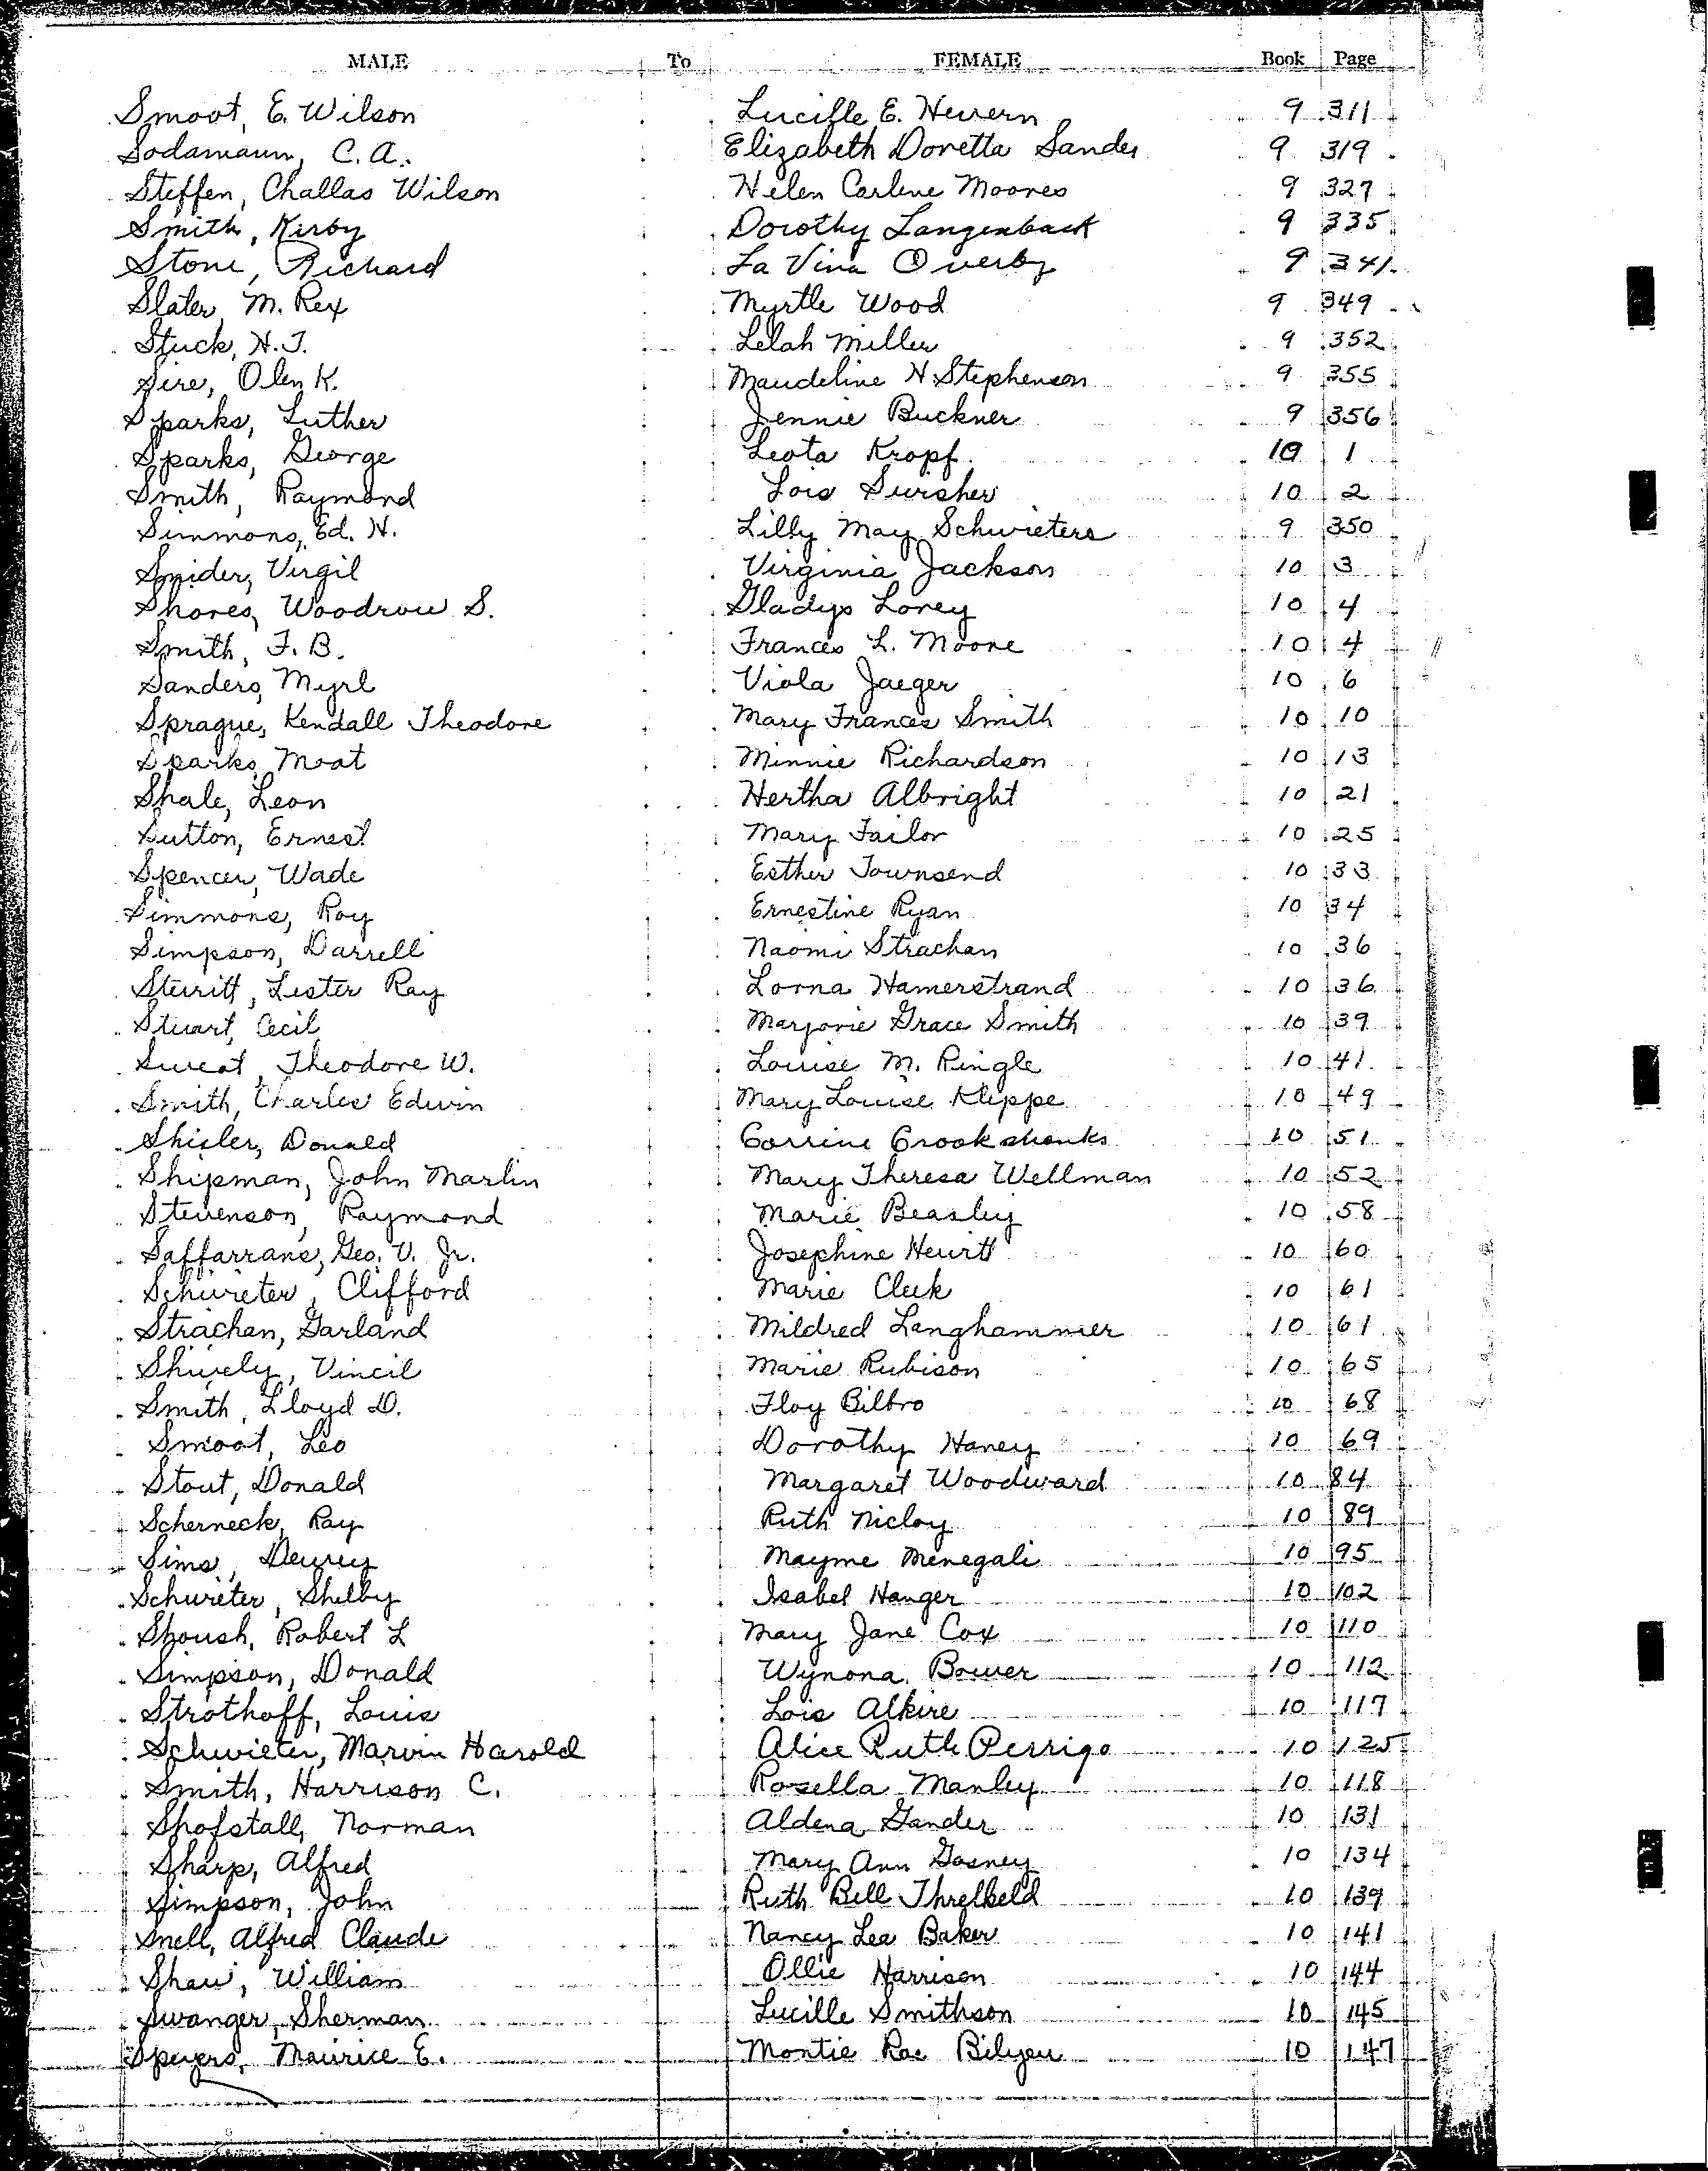 MALE To FEMALE Book Page
Smoot, E. Wilson Lucille E. Hevern 9 311
Sodamann, C. A. Elizabeth Doretta Sander 9 319
Steffen, Challas Wilson Helen Carlene Moores 9 327
Smith, Kirby Dorothy Langenback 9 335
Stone, Richard La Vina Overby 9 341
Slater, M. Rex Myrtle Wood 9 349
Stuck, H. J. Lelah Miller 9 352
Sire, Olen K. Maudeline H Stephenson 9 355
Sparks, Luther Jennie Buckner 9 356
Sparks, George Leota Kropf. 10 1
Smith, Raymond Lois Swisher 10 2
Simmons, Ed. H. Lilly May Schwieters 9 350
Snider, Virgil Virginia Jackson 10 3
Shores, Woodrow S. Gladys Lovey 10 4
Smith, F. B. Frances L. Moore 10 4
Sanders, Myrl Viola Jaeger 10 6
Sprague, Kendall Theodore Mary Frances Smith 10 10
Sparks, Moat Minnie Richardson 10 13
Shale, Leon Hertha Albright 10 21
Sutton, Ernest Mary Failor 10 25
Spencer, Wade Esther Townsend 10 33
Simmons, Roy Ernestine Ryan 10 34
Simpson, Darrell Naomi Strachan 10 36
Sterritt, Lester Ray Lorna Hamerstrand 10 36
Stuart, Cecil Marjorie Grace Smith 10 39
Sweat, Theodore W. Louise M. Ringle 10 41
Smith, Charles Edwin Mary Louise Klippe 10 49
Shisler, Donald Corrine Crookshanks 10 51
Shipman, John Marlin Mary Theresa Wellman 10 52
Stevenson, Raymond Marie Beasley 10 58
Saffarrans, Geo. V. Jr. Josephine Hewitt 10 60
Schwieter, Clifford Marie Cleek 10 61
Strachan, Garland Mildred Langhammer 10 61
Shively, Vincil Marie Rubison 10 65
Smith, Lloyd D. Floy Bilbro 10 68
Smoot, Leo Dorothy Haney 10 69
Stout, Donald Margaret Woodward 10 84
Scherneck, Ray Ruth Nicloy 10 89
Sims, Dewey Mayme Menegali 10 95
Schwieter, Shelby Isabel Hanger 10 102
Shoush, Robert L Mary Jane Cox 10 110
Simpson, Donald Wynona Bower 10 112
Strothoff, Louis Lois Alkire 10 117
Schwieter, Marvin Harold Alice Ruth Perrigo 10 125
Smith, Harrison C. Rosella Manley 10 118
Shofstall, Norman Aldena Gander 10 131
Sharp, Alfred Mary Ann Gosney 10 134
Simpson, John Ruth Bell Threlkeld 10 139
Snell, Alfred Claude Nancy Lea Baker 10 141
Shaw, William Ollie Harrison 10 144
Swanger, Sherman Lucille Smithson 10 145
Speyers, Maurice E. Montie Rae Bilyeu 10 147